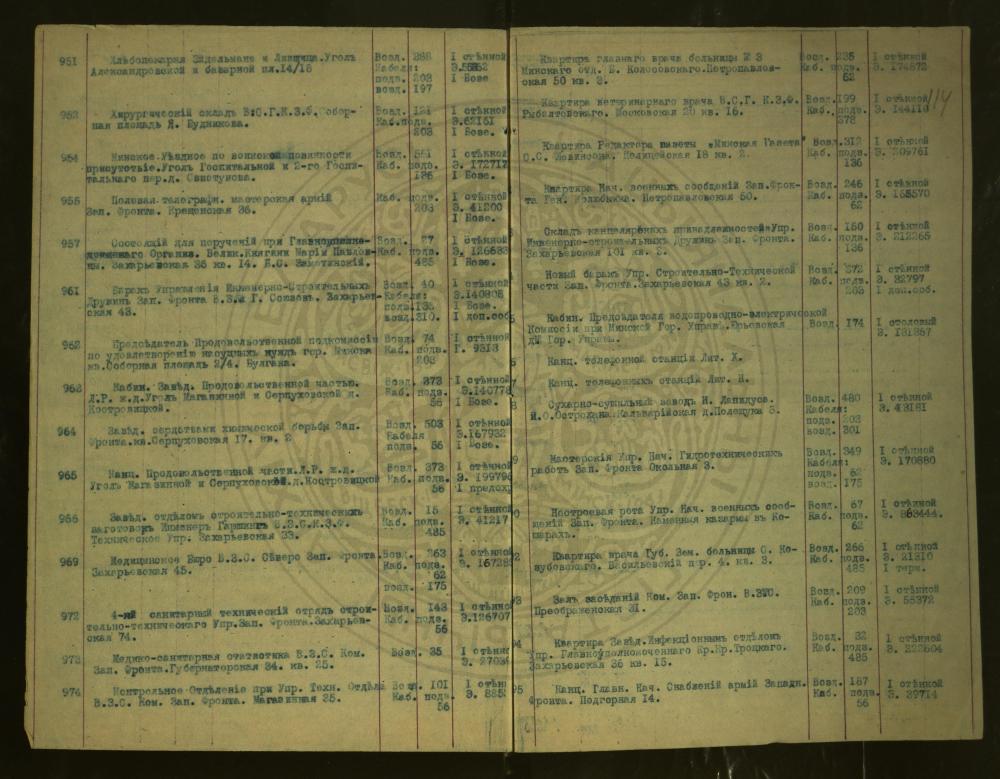 951 Хлѣбопекарня Эйдельмана и Лившица. Уголъ Возд. 288 I стѣнной
Александровской и базарной пл. 14/16 Кабеля: Э.
подз. 203 I Бове
возд. 197
952 Хирургическій складъ В.С.Г.К.З.Ф. Собор- Возд. 121 I стѣнной
ная площадь Я. Будникова. Каб. подз. Э. 62161
203 I Бове.
954 Минское Уѣздное по воинской повинности Возд. 551 I стѣнной
присутствіе. Уголъ Госпитальной и 2-го Госпи- Каб. подз. Э. 172717
тальнаго пер. д. Свистунова. 136 I Бове.
955 Полевая телеграфн. мастерская армій Каб. подз. I стѣнной
Зап. Фронта. Крещенская 36. 203 Э. 41200
I Бове.
957 Состоящій для порученій при Возд. 27 I стѣнной
Организ. Велик. Княгини Маріи Павлов- Каб. подз. Э. 126683
ны. Захарьевская 36 кв. 14. Замятинскій. 485 I Бове.
961 Баракъ Управленія Инженерно-Строительныхъ Возд. 40 I стѣнной
Дружинъ Зап. Фронта В.З. и Г. Союзовъ. Захарьев- Кабеля: Э.140805
ская 43. подз. 136 I Бове.
возд. 310. I доп. соб
962 Предсѣдатель Продовольственной подкомиссіи Возд. 74 I стѣнной
по удовлетворенію насущныхъ нуждъ гор. Минска Каб. подз. Г. 9313
кв. Соборная площадь 2/4. Булгака. 203
963 Кабин. Завѣд. Продовольственной частью. Возд. 373 I стѣнной
Л.Р. ж.д. Уголъ Магазинной и Серпуховской д. Каб. подз. Э.140778
Костровицкой. 56 I Бове.
964 Завѣд. средствами химической борьбы Зап. Возд. 503 I стѣнной
Фронта. кв. Серпуховская 17. кв. 2 Кабеля Э.167932
подз. 56 I Бове.
965 Канц. Продовольственной части. Л.Р. ж.д. Возд. 373 I стѣнной
Уголъ Магазинной и Серпуховской. д. Костровицкой Каб. подз. Э. 19979
56 I предохр
966 Завѣд. отдѣломъ строительно-техническихъ Возд. 15 I стѣнной
заготовокъ Инженеръ Гаршинъ В.З.С.К.З.Ф. Каб. подз. Э. 41217
Техническое Упр. Захарьевская 33. 485
969 Медицинское Бюро В.З.С. Сѣверо Зап. Фронта. Возд. 263 I стѣнной
Захарьевская 45. Каб. подз. Э. 16728
62
возд. 175
972 4-ый санитарный техническій отрядъ строи- Возд. 143 I стѣнной
тельно-техническаго Упр. Зап. Фронта. Захарьев- Каб. подз. Э.126707
ская 74. 56
973 Медико-санитарная статистика В.З.С. Ком. Возд. 35 I стѣнной
Зап. Фронта. Губернаторская 34. кв. 25. Э. 2703
974 Контрольное Отдѣленіе при Упр. Техн. Отдѣла Возд. 101 I стѣн
В.З.С. Ком. Зап. Фронта. Магазинная 35. Каб. подз. Э. 885
56
114
Квартира главнаго врача больницы № 3 Возд. 235 I стѣнной
Минскаго отд. Б. Колосовскаго. Петропавлов- Каб. подз. Э. 174873
ская 50 кв. 3. 62
Квартира ветеринарнаго врача В.С.Г. К.З.Ф. Возд. 199 I стѣнной
Рыбалтовскаго. Московская 20 кв. 16. Каб. подз. Э. 144116
378
Квартира Редактора газеты „Минская Газета" Возд. 312 I стѣнной
С.С. Жавинсона. Полицейская 18 кв. 2. Каб. подз. Э. 209761
136
Квартира Нач. военныхъ сообщеній Зап. Фрон- Возд. 246 I стѣнной
та Ген. Колюбкина. Петропавловская 50. Каб. подз. Э. 165570
62
Складъ канцелярскихъ принадлежностей Упр. Возд. 150 I стѣнной
Инженерно-строительныхъ Дружинъ Зап. Фронта. Каб. подз. Э. 212265
Захарьевская 101 кв. 3. 136
Новый баракъ Упр. Строительно-Технической Возд. 272 I стѣнной
части Зап. Фронта. Захарьевская 43 кв. 2. Каб. подз. Э. 32797
203 I доп. соб.
5 Кабин. Предсѣдателя водопроводно-электрической
Комиссіи при Минской Гор. Управѣ. Юрьевская Возд. 174 I столовый
д. Гор. Управы. Э. 131357
Канц. телефонной станціи Лит. Х.
7 Канц. телефонныхъ станцій Лит. Н.
8 Сухарно-сушильный заводъ И. Лапидуса. Возд. 480 I стѣнной
И.О. Острохана. Кальварійская д. Полещука 3. Кабеля: Э. 43181
подз. 203
возд. 301
9 Мастерскія Упр. Нач. Гидротехническихъ Возд. 349 I стѣнной
работъ Зап. Фронта Окольная 3. Кабеля: Э. 170880
подз. 62
возд. 175
0 Настроевая рота Упр. Нач. военныхъ сооб- Возд. 67 I стѣнной
щеній Зап. Фронта. Каменная казарма въ Ко- Каб. подз. Э. 63444.
шарахъ. 62
2 Квартира врача Губ. Зем. больницы С. Ко- Возд. 266 I стѣнной
нубовскаго. Васильевскій пер. 4. кв. 3. Каб. подз. Э. 21310
485 I терм.
93 Залъ засѣданій Ком. Зап. Фрон. В.З.С. Возд. 209 I стѣнной
Преображенская 31. Каб. подз. Э. 55372
203
94 Квартира Завѣд. Инфекціоннымъ отдѣломъ Возд. 32 I стѣнной
Упр. Главноуполномоченнаго Кр. Кр. Троцкаго. Каб. подз. Э. 222604
Захарьевская 36 кв. 15. 485
95 Канц. Главн. Нач. Снабженій армій Западн. Возд. 187 I стѣнной
Фронта. Подгорная 14. Каб. подз. Э. 39714
56